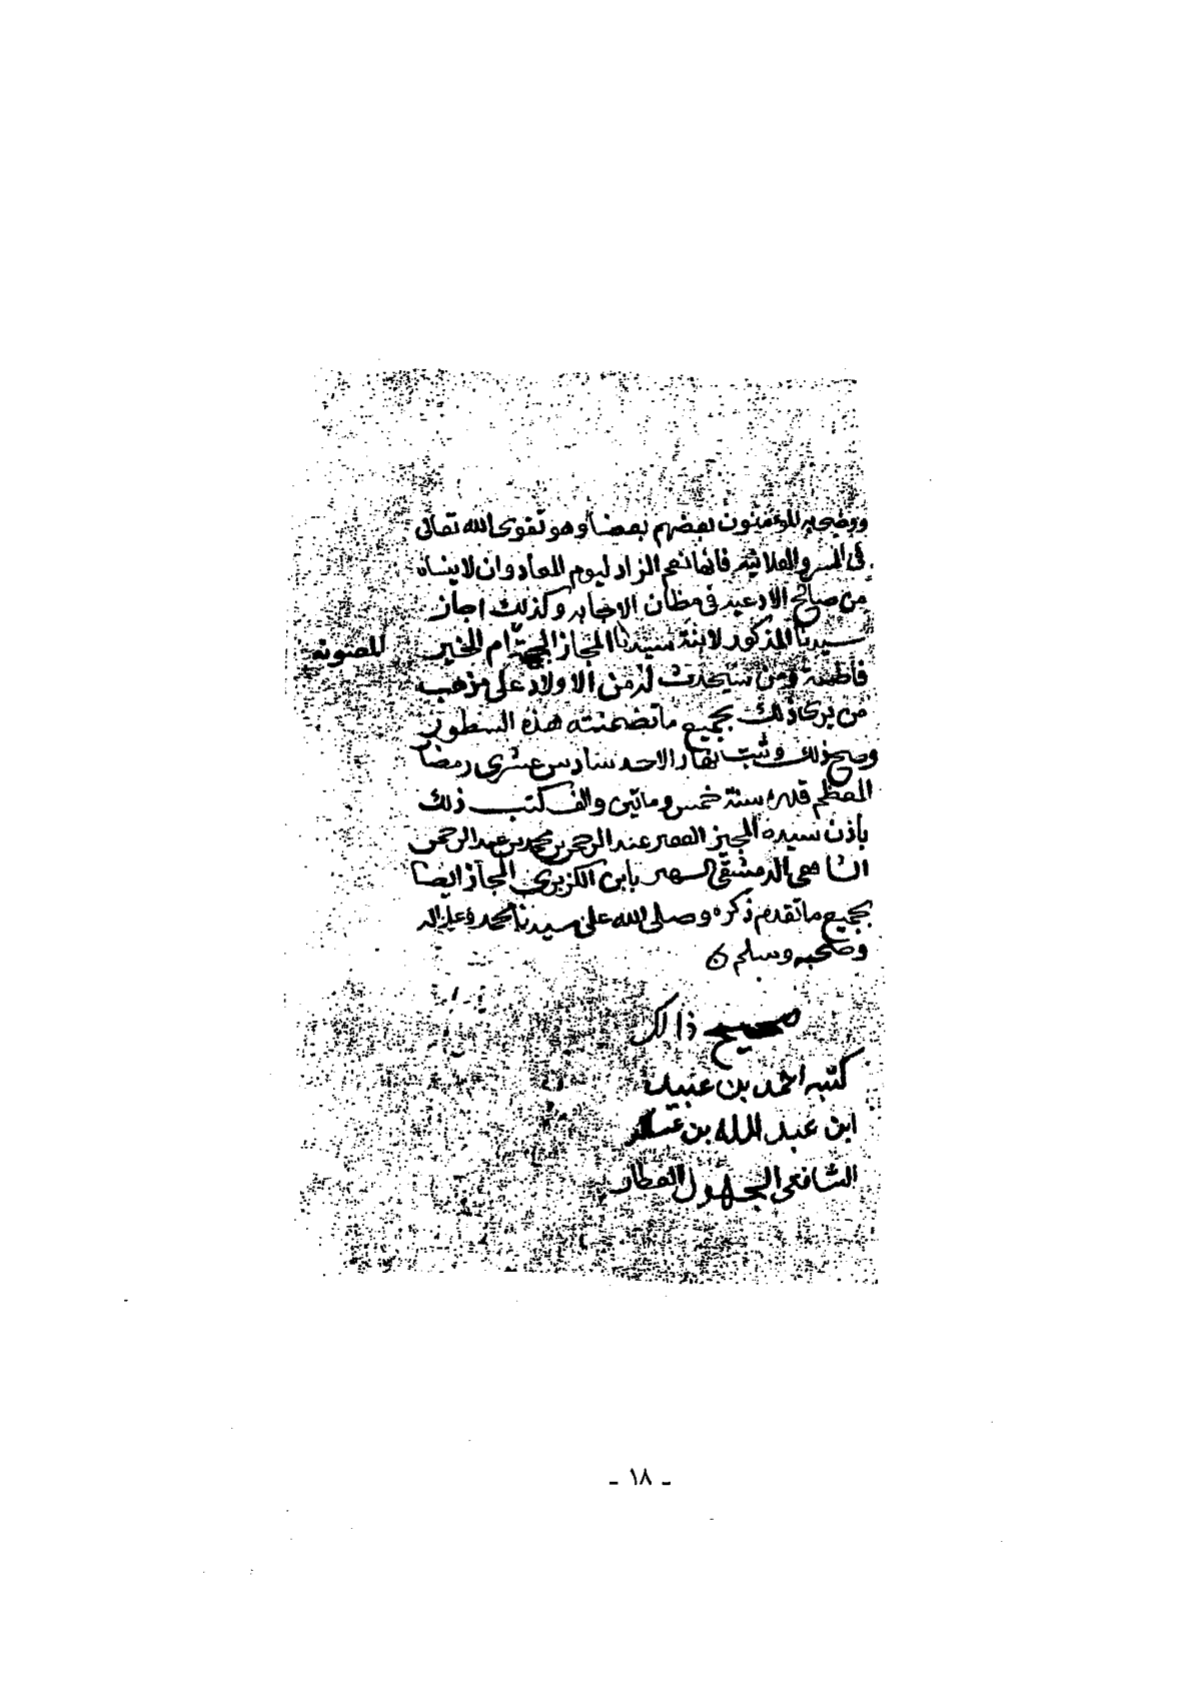 ووصى به المؤمنون بعضهم بعضا وهو تقوى الله تعالى
فى السر والعلانية فانها نعم الزاد ليوم المعاد وان لا ينساه
من صالح الادعية فى مظان الاجابه وكذلك اجاز
سيدنا المذكور لابنة سيدنا المجاز ام الخير المصونه
فاطمة ومن سيحدث له من الاولاد على مذهب
من يرى ذلك بجميع ما تضمنته هذه السطور
وصح ذلك وثبت نهار الاحد سادس عشرى رمضان
المعظم قدره سنة خمس وماتين والف كتب ذلك
باذن سيده المجيز الفقير عبد الرحمن بن محمد بن عبد الرحمن
الشافعى الدمشقى الشهير بابن الكزبرى المجاز ايضا
بجميع ما تقدم ذكره وصلى الله على سيدنا محمد وعلى اله
وصحبه وسلم
صحيح ذالك
كتبه احمد بن عبيد
ابن عبد الله بن عسكر
الشافعى العطار
- ١٨ -